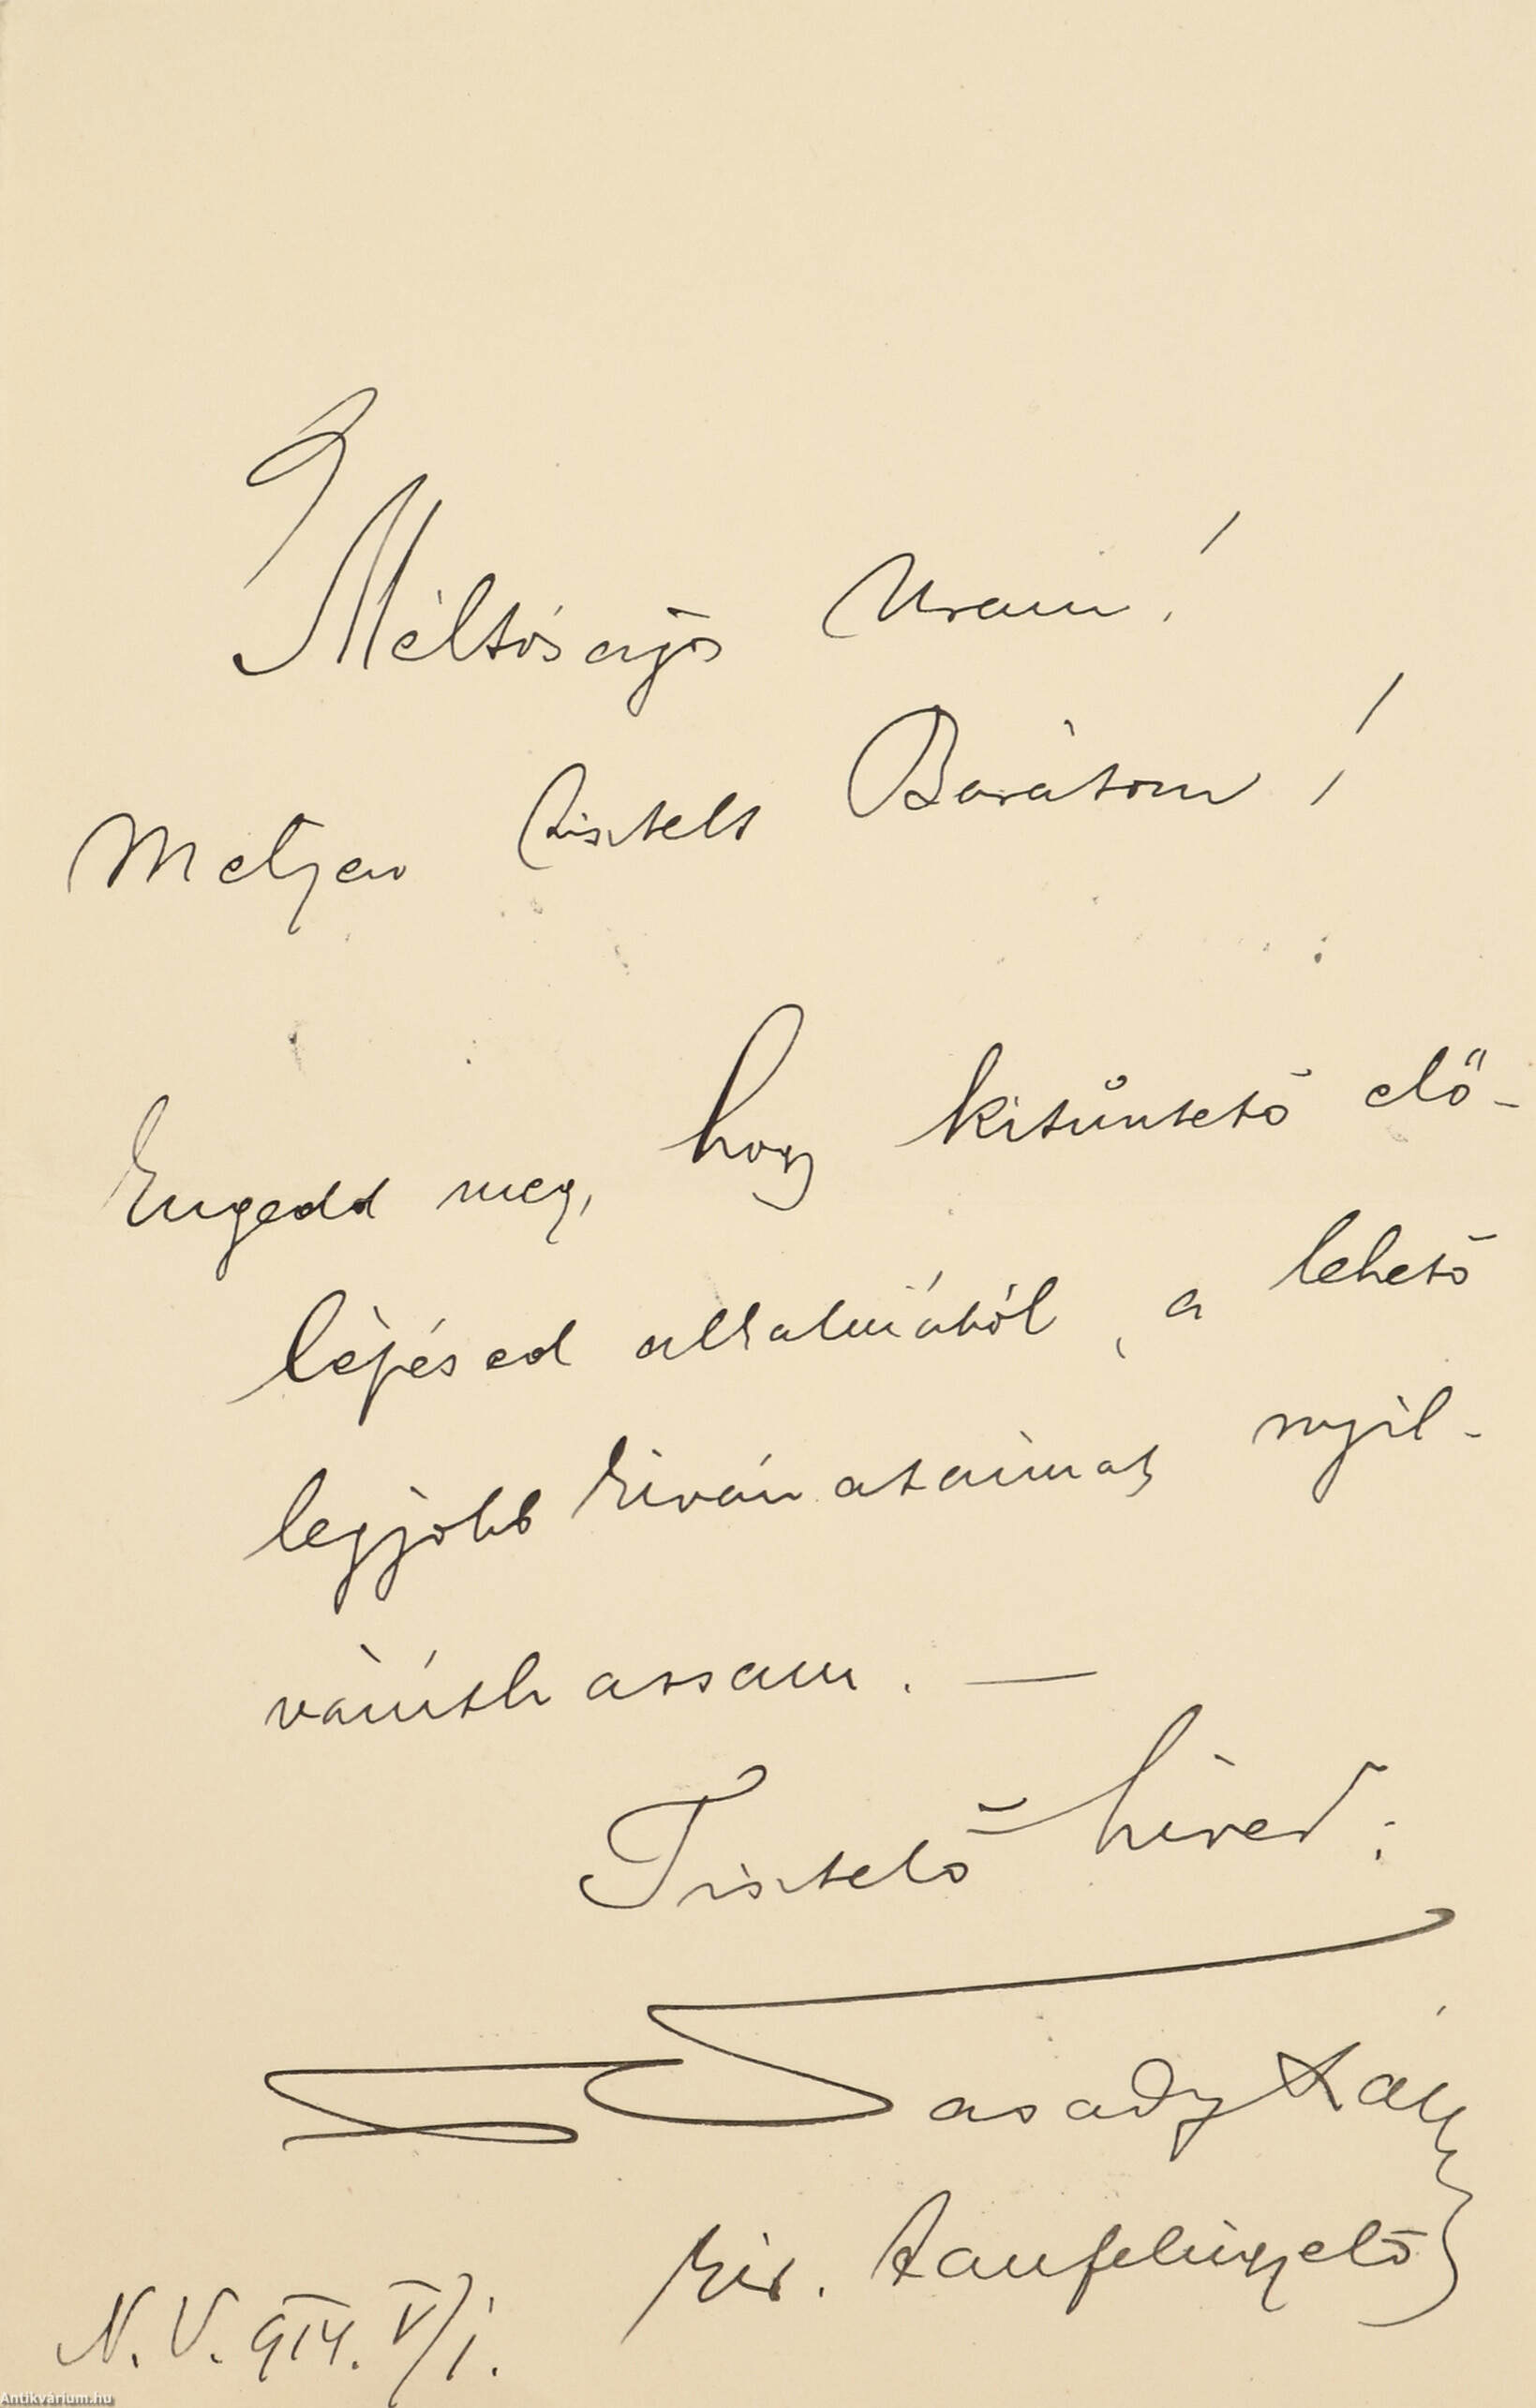 Méltóságos Uram!
Mélyen tisztelt Barátom!
Engedd meg, hogy kitüntető elő-
lépésed alkalmából, a lehető
legjobb kivánataimat nyil-
vánithassam. —
Tisztelő hived:
kir. tanfelügyelő
N. V. 914. V/1.
Antikvárium.hu